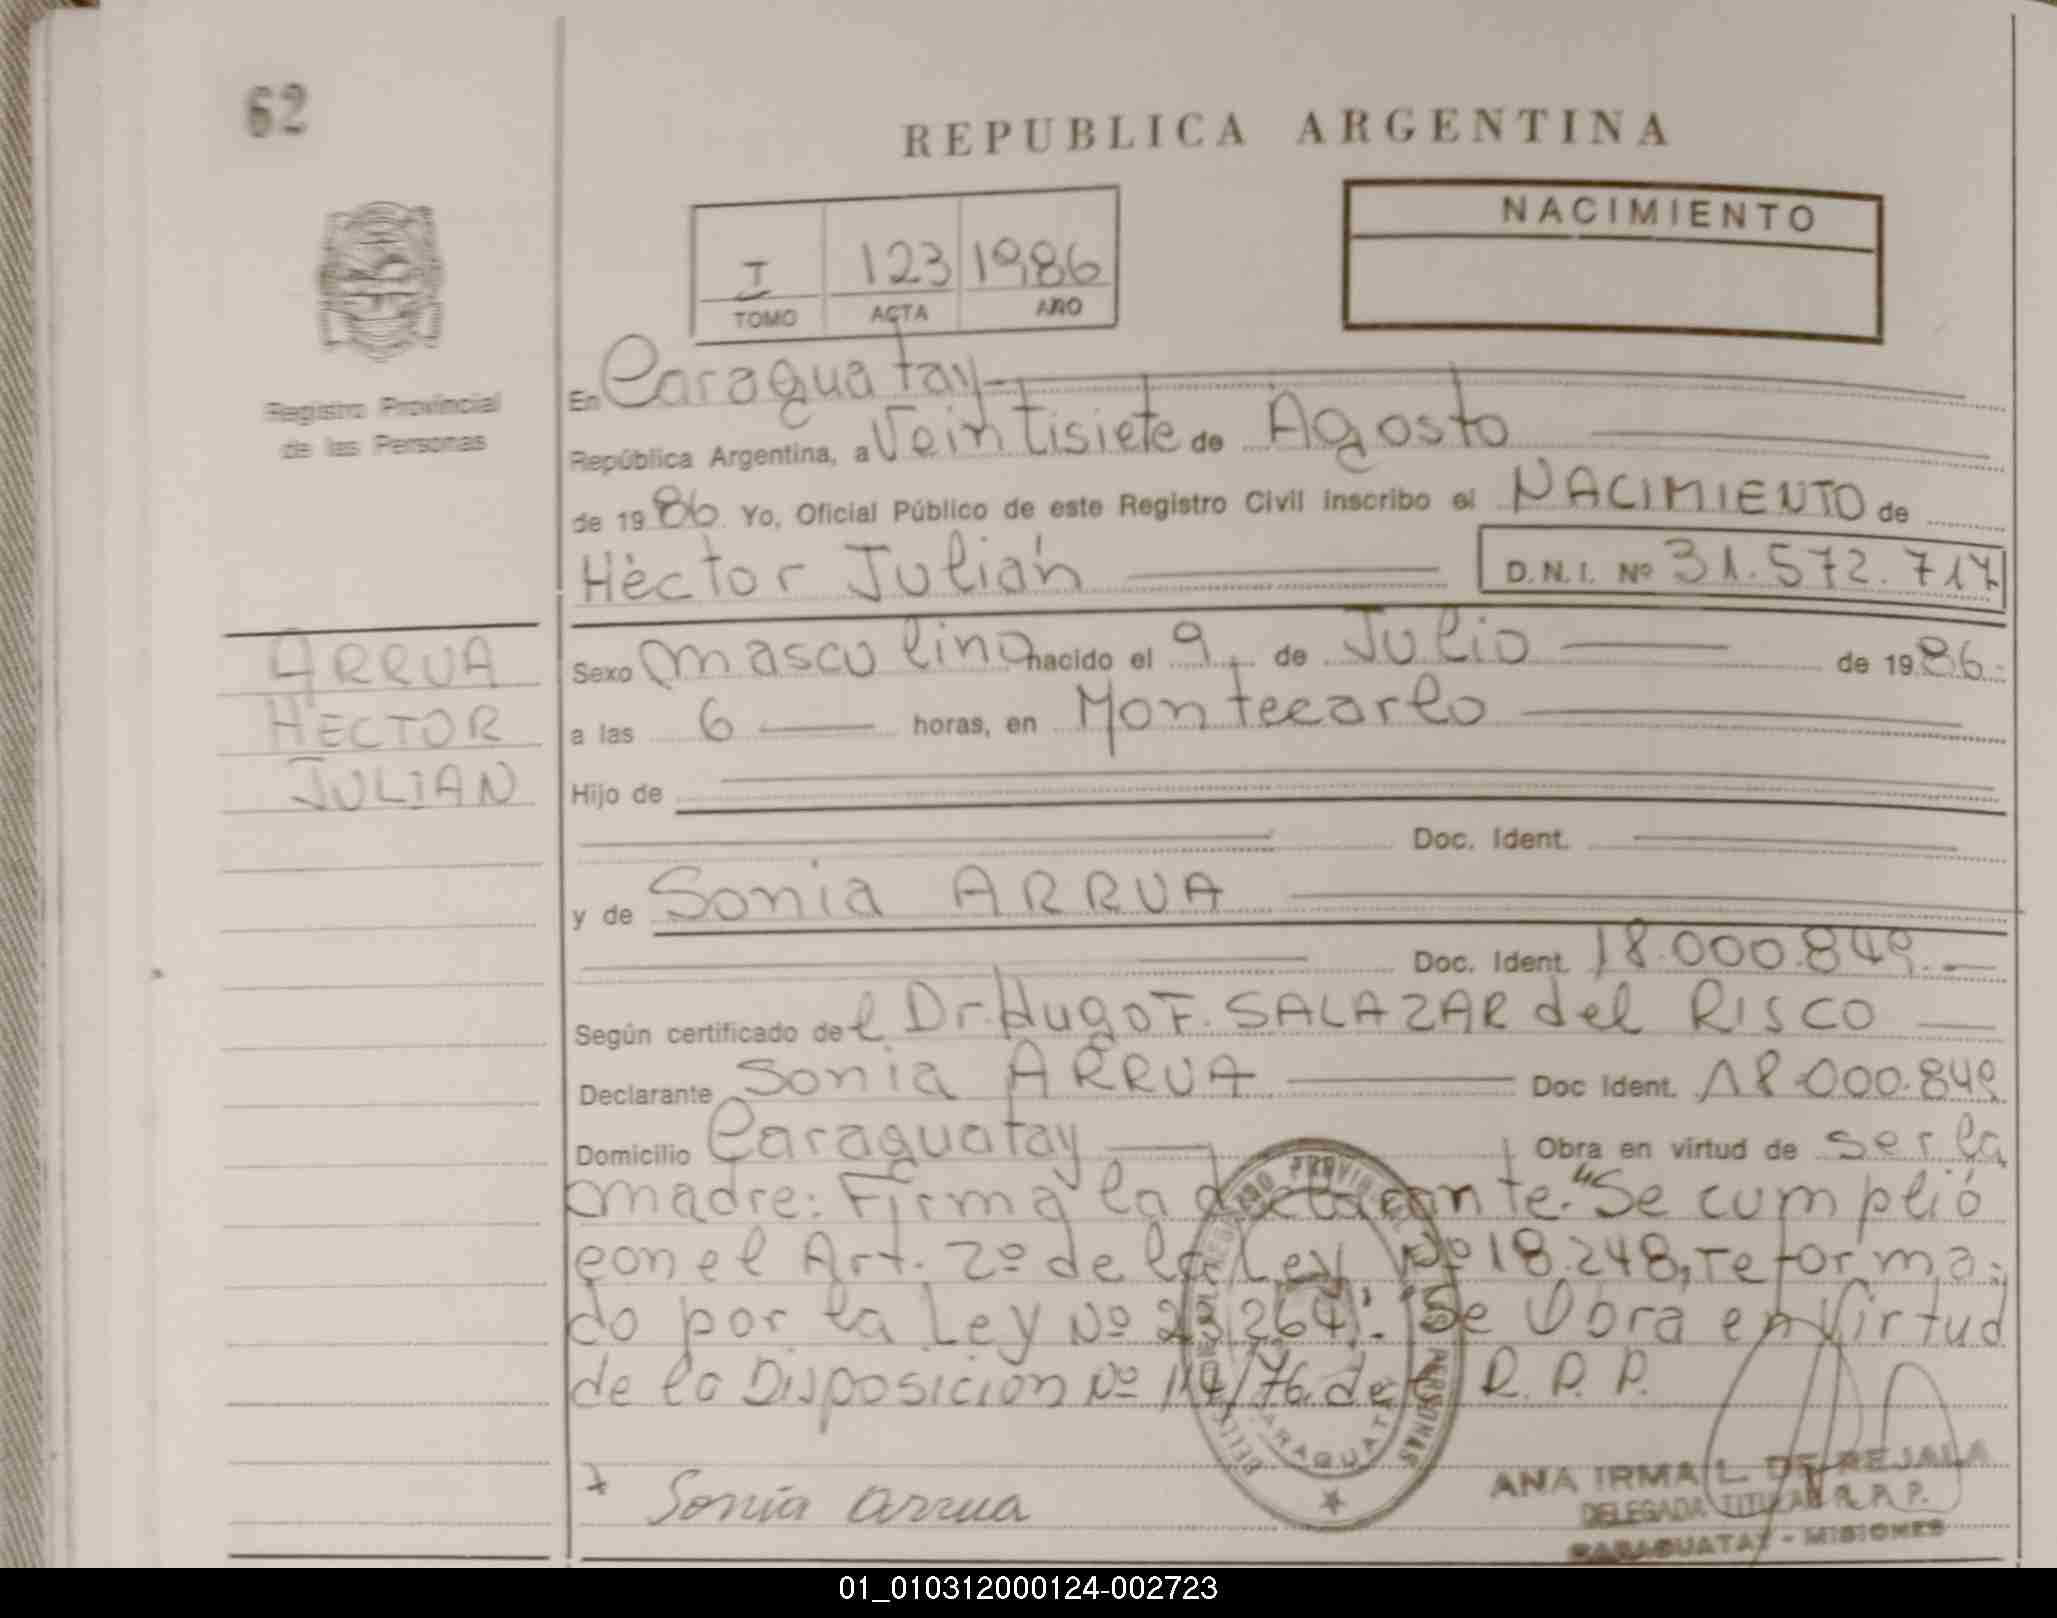 62
REPUBLICA ARGENTINA
NACIMIENTO
I 123 1986
TOMO ACTA AÑO
Registro Provincial
de las Personas
En Caraguatay
República Argentina, a Veintisiete de Agosto
de 1986 Yo, Oficial Público de este Registro Civil inscribo el NACIMIENTO de
Héctor Julián D.N.I. Nº 31.572.717
ARRUA
HECTOR
JULIAN
Sexo masculino nacido el 9 de Julio de 1986
a las 6 horas, en Montecarlo
Hijo de
Doc. Ident.
y de Sonia ARRUA
Doc. Ident. 18.000.849
Según certificado del Dr. Hugo F. SALAZAR del RISCO
Declarante Sonia ARRUA Doc Ident. 18.000.849
Domicilio Caraguatay Obra en virtud de ser la
madre: Firma la declarante. "Se cumplió
con el Art. 2º de la Ley Nº 18.248, reforma-
do por la Ley Nº 23.264". Se Obra en Virtud
de la Disposición Nº 114/76 del R.P.P.
Sonia Arrua
ANA IRMA L. DE REJALA
DELEGADA TITULAR R.P.P.
CARAGUATAY - MISIONES
01_010312000124-002723